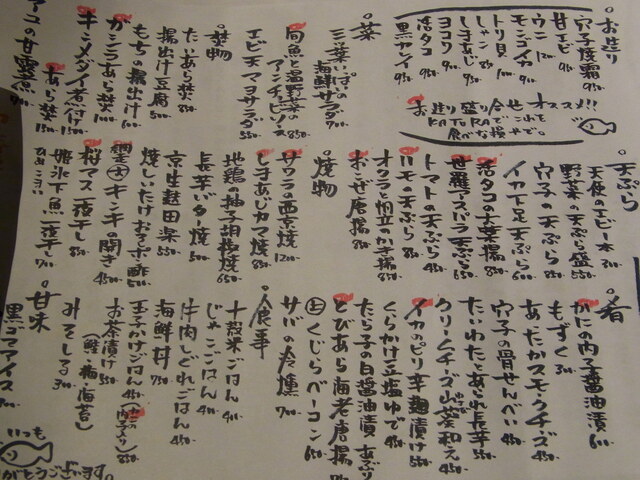 お造り
穴子焼霜 950
甘エビ 950
ウニ 1200
モンゴイカ 950
トリ貝 950
しゃこ 850
しまあじ 950
ヨコワ 950
活タコ 950
黒ソイ 950
オススメ!!
菜
三菜いっぱいの海鮮サラダ 700
旬魚と温野菜のアンチョビソース 850
エビ天マヨサラダ 550
焚物
たいあら焚 850
揚出汁豆腐 500
もちの揚出汁 600
ガシラあら焚 1000
キンメダイ煮付 1500
あら焚 1500
天ぷら
天使のエビ一本 300
野菜の天ぷら盛 550
穴子の天ぷら 850
イカ下足天ぷら 600
活タコの大葉揚 850
世羅アスパラ天ぷら 650
トマトの天ぷら 450
ハモの天ぷら 850
オクラと帆立のかき揚 850
おこぜ唐揚 850
焼物
サワラの西京焼 1200
しまあじカマ焼 850
地鶏の柚子胡椒焼 650
長芋バター焼 500
京生麩田楽 550
焼しいたけおろしポン酢 500
網走大キンキの開き 4500
桜マス一夜干し 850
氷下魚一夜干し 700
肴
かにの内子醤油漬 600
もずく 300
あったかスモークチーズ 450
穴子の骨せんべい 450
たいわたとあられ長芋 550
クリームチーズ山葵和え 450
イカのピリ辛麹漬け 550
くらかけ豆塩ゆで 450
たら子の白醤油漬あぶり
とびあら海老唐揚
上くじらベーコン 650
サバの冷燻 700
食事
十穀米ごはん 400
じゃこごはん 400
牛肉しぐれごはん 450
海鮮丼 950
玉子かけごはん 450
お茶漬け 550
(鮭・梅・海苔)
みそしる 300
甘味
黒ゴマアイス 300
いつも
ありがとうございます。